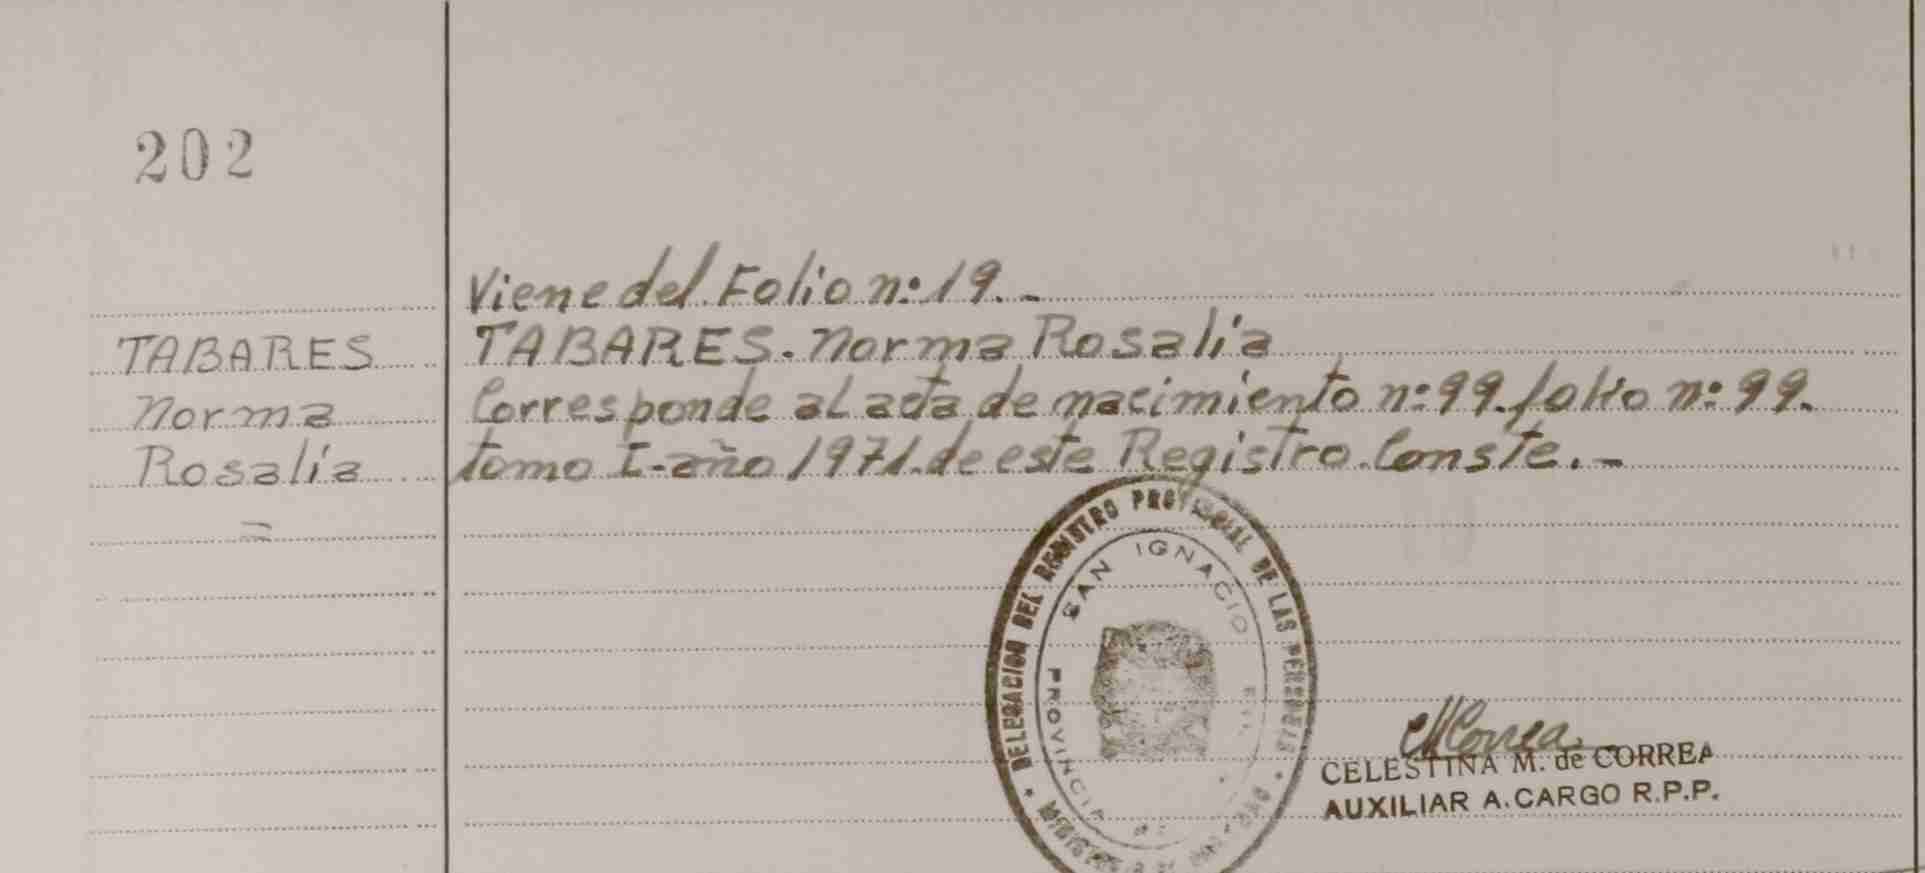 202
TABARES
Norma
Rosalía
Viene del Folio n: 19. -
TABARES. Norma Rosalía
Corresponde al acta de nacimiento n: 99. folio n: 99.
tomo I-año 1971. de este Registro. Conste. -
DELEGACION DEL REGISTRO PROVINCIAL DE LAS PERSONAS
SAN IGNACIO
PROVINCIA
CMCorrea
CELESTINA M. de CORREA
AUXILIAR A. CARGO R.P.P.